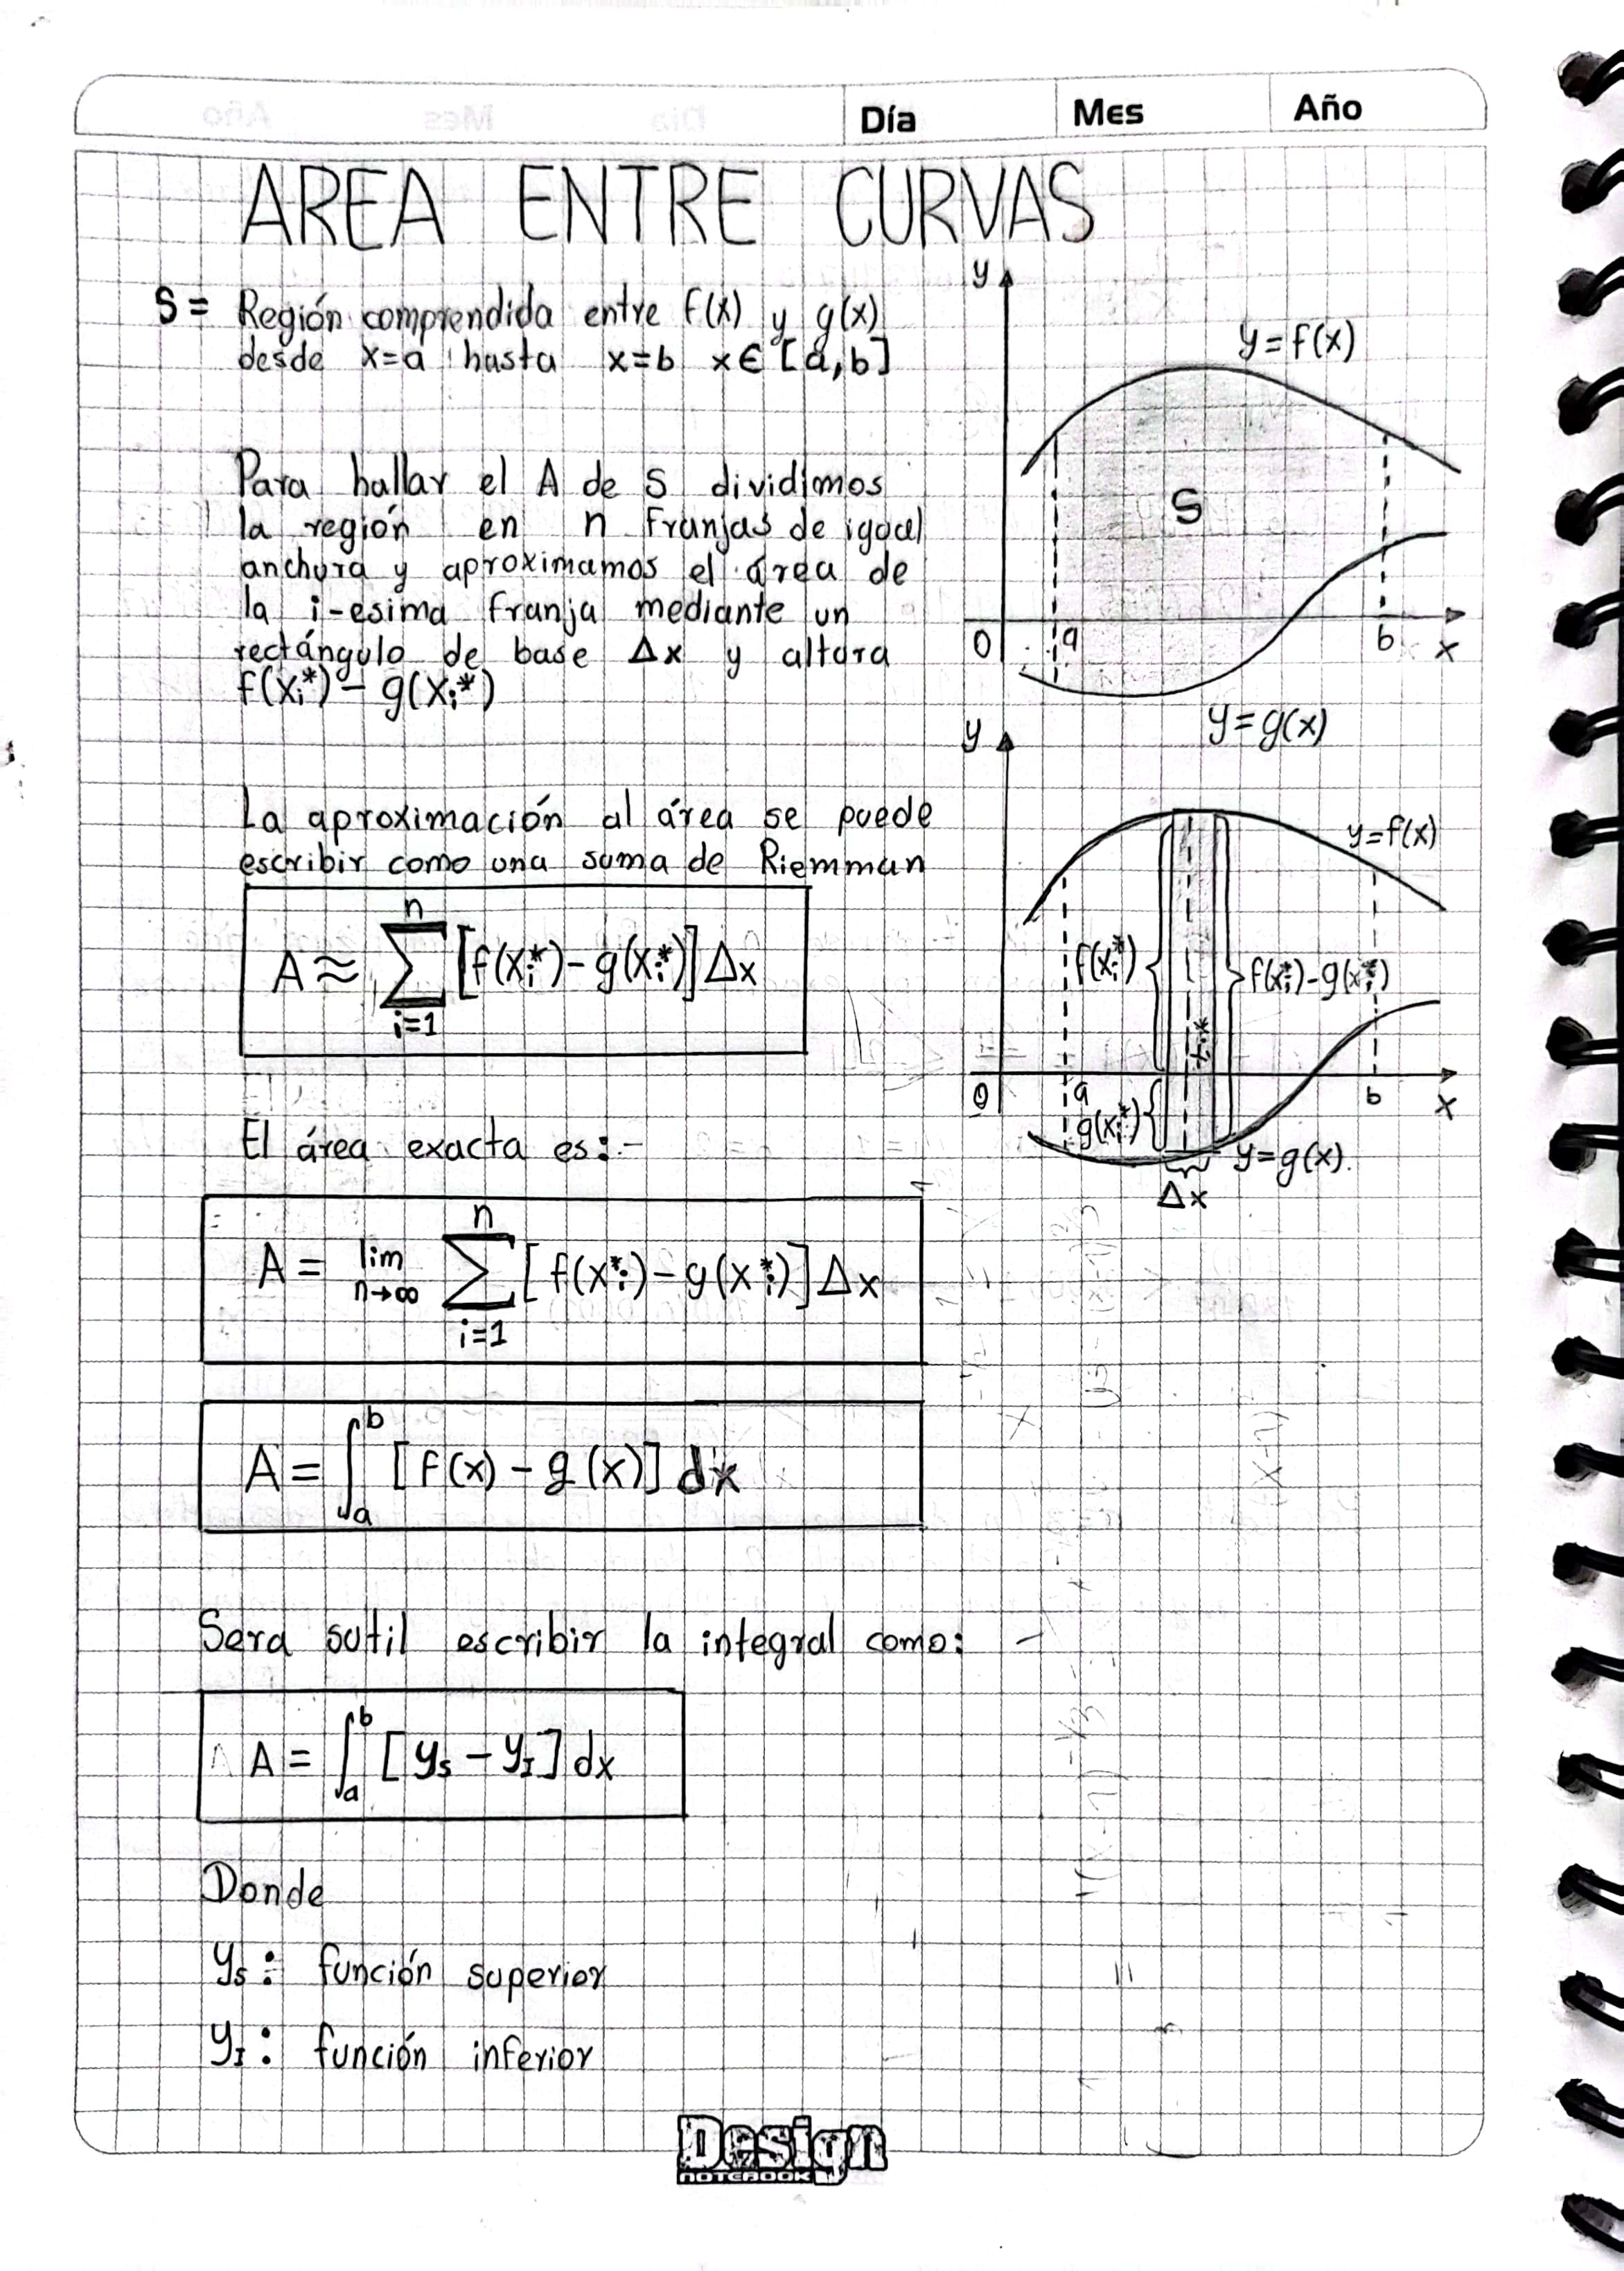 Día Mes Año
AREA ENTRE CURVAS
S = Región comprendida entre f(x) y g(x)
desde x=a hasta x=b x∈[a,b]
Para hallar el A de S dividimos
la región en n franjas de igual
anchura y aproximamos el área de
la i-esima franja mediante un
rectángulo de base Δx y altura
f(xᵢ*) - g(xᵢ*)
y
y=f(x)
S
0 a b x
y=g(x)
La aproximación al área se puede
escribir como una suma de Riemman
A ≈ ∑ᵢ₌₁ⁿ [f(xᵢ*) - g(xᵢ*)] Δx
y
y=f(x)
f(xᵢ*) f(xᵢ*)-g(xᵢ*)
xᵢ*
0 a b x
g(xᵢ*) y=g(x).
Δx
El área exacta es:-
A = lim n→∞ ∑ᵢ₌₁ⁿ [f(xᵢ*) - g(xᵢ*)] Δx
A = ∫ₐᵇ [f(x) - g(x)] dx
Sera sutil escribir la integral como: -
A = ∫ₐᵇ [yₛ - y_I] dx
Donde
yₛ: función superior
y_I: función inferior
Design
NOTEBOOK